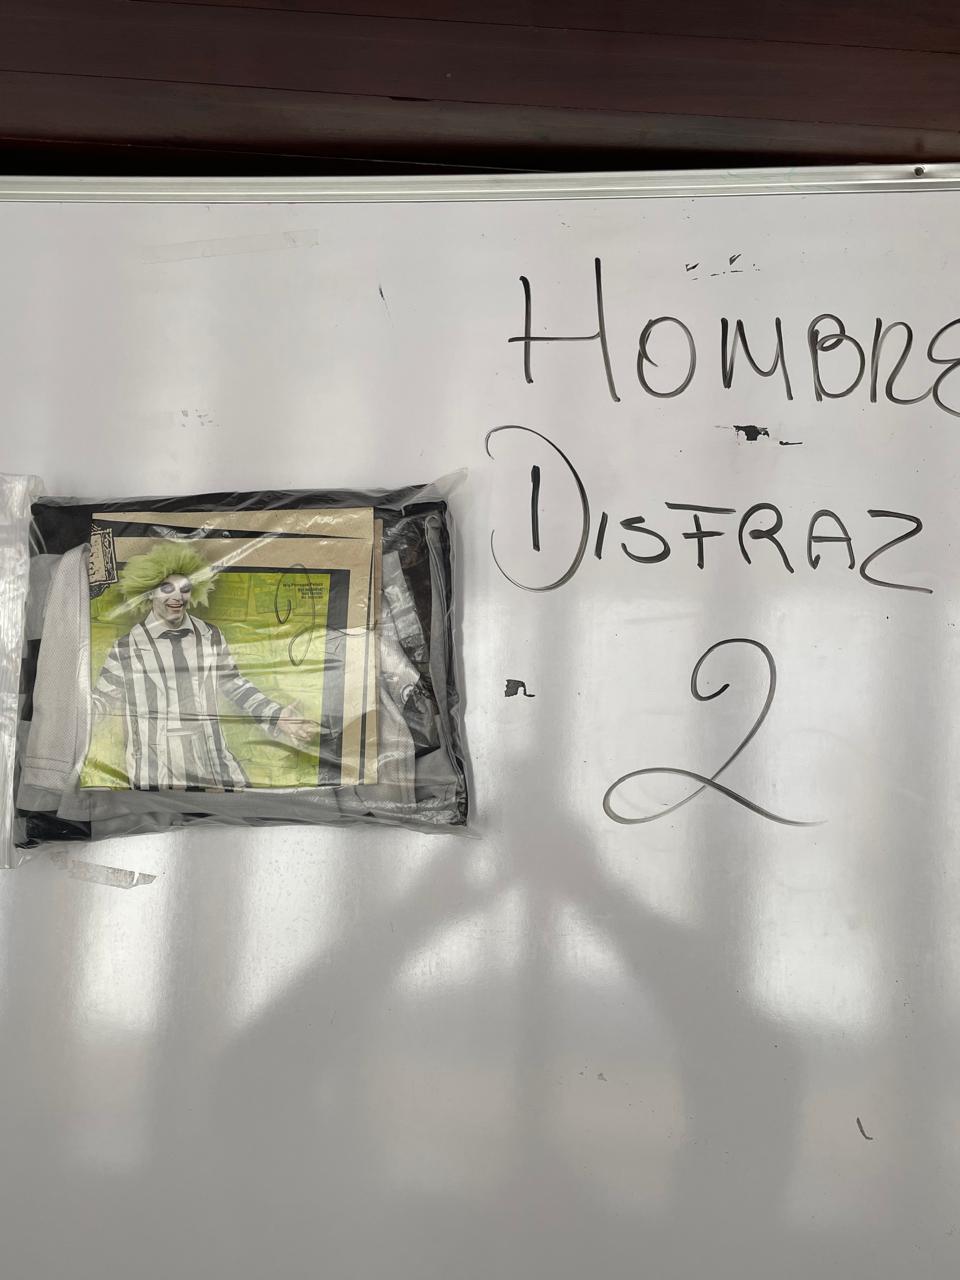 HOMBRE
DISFRAZ
2
2